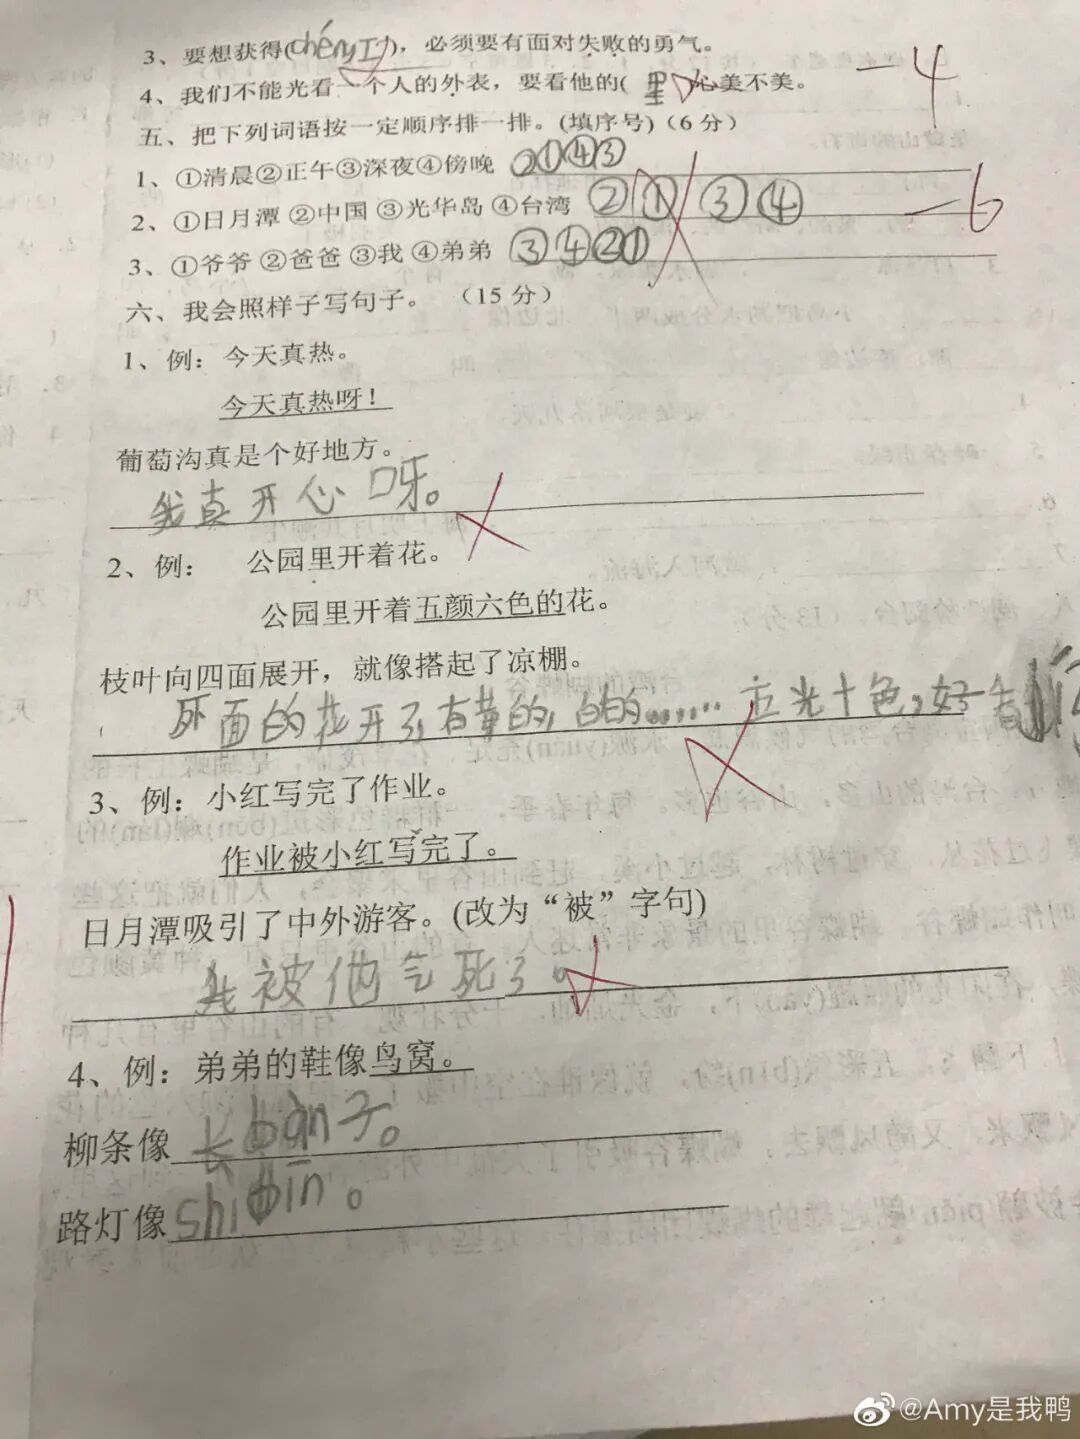 3、要想获得(chénɡ工力)，必须要有面对失败的勇气。
4、我们不能光看一个人的外表，要看他的(里)心美不美。
-4
五、把下列词语按一定顺序排一排。(填序号)（6 分）
1、①清晨②正午③深夜④傍晚 ②①④③
2、①日月潭 ②中国 ③光华岛 ④台湾 ②①③④
-6
3、①爷爷 ②爸爸 ③我 ④弟弟 ③④②①
六、我会照样子写句子。（15 分）
1、例：今天真热。
今天真热呀！
葡萄沟真是个好地方。
我真开心呀。
2、例： 公园里开着花。
公园里开着五颜六色的花。
枝叶向四面展开，就像搭起了凉棚。
面的花开了,有黄的,白的……五光十色,好看
3、例：小红写完了作业。
作业被小红写完了。
日月潭吸引了中外游客。(改为“被”字句)
我被俩气死了。
4、例：弟弟的鞋像鸟窝。
柳条像长biàn子。
路灯像shi bīn。
@Amy是我鸭